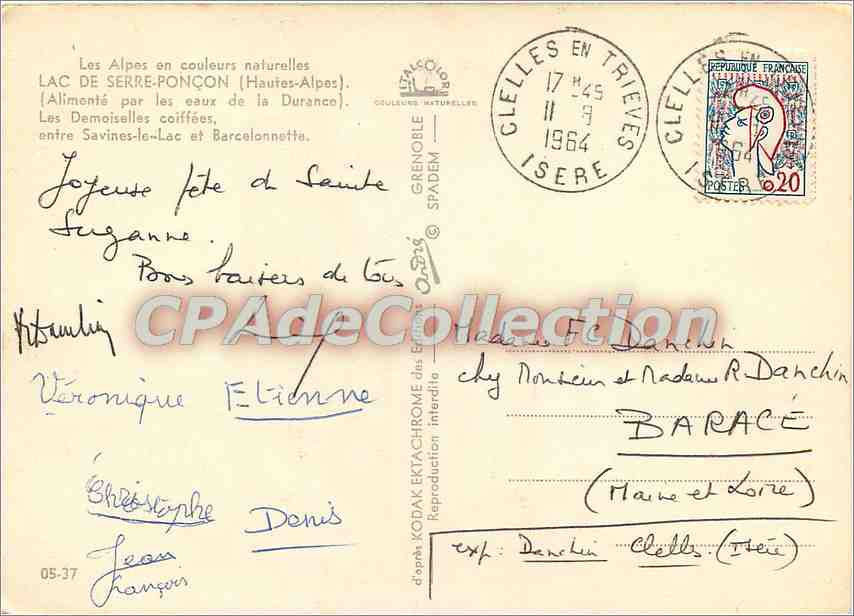 Les Alpes en couleurs naturelles
LAC DE SERRE-PONÇON (Hautes-Alpes).
(Alimenté par les eaux de la Durance).
Les Demoiselles coiffées,
entre Savines-le-Lac et Barcelonnette.
ITALCOLOR
COULEURS NATURELLES
CLELLES EN TRIEVES
17 H 45
11 - 8
1964
ISERE
CLELLES EN
ISERE
REPUBLIQUE FRANÇAISE
POSTES 0,20
Joyeuse fête de Sainte
Suzanne.
Bons baisers de tous
Véronique Etienne
Christophe
Denis
Jean
François
05-37
d'après KODAK EKTACHROME des Editions André GRENOBLE
Reproduction interdite - © SPADEM
CPAdeCollection
Madame F.C Danchin
chez Monsieur et Madame R. Danchin
BARACÉ
(Maine et Loire)
exp: Danchin Clelles. (Isère)